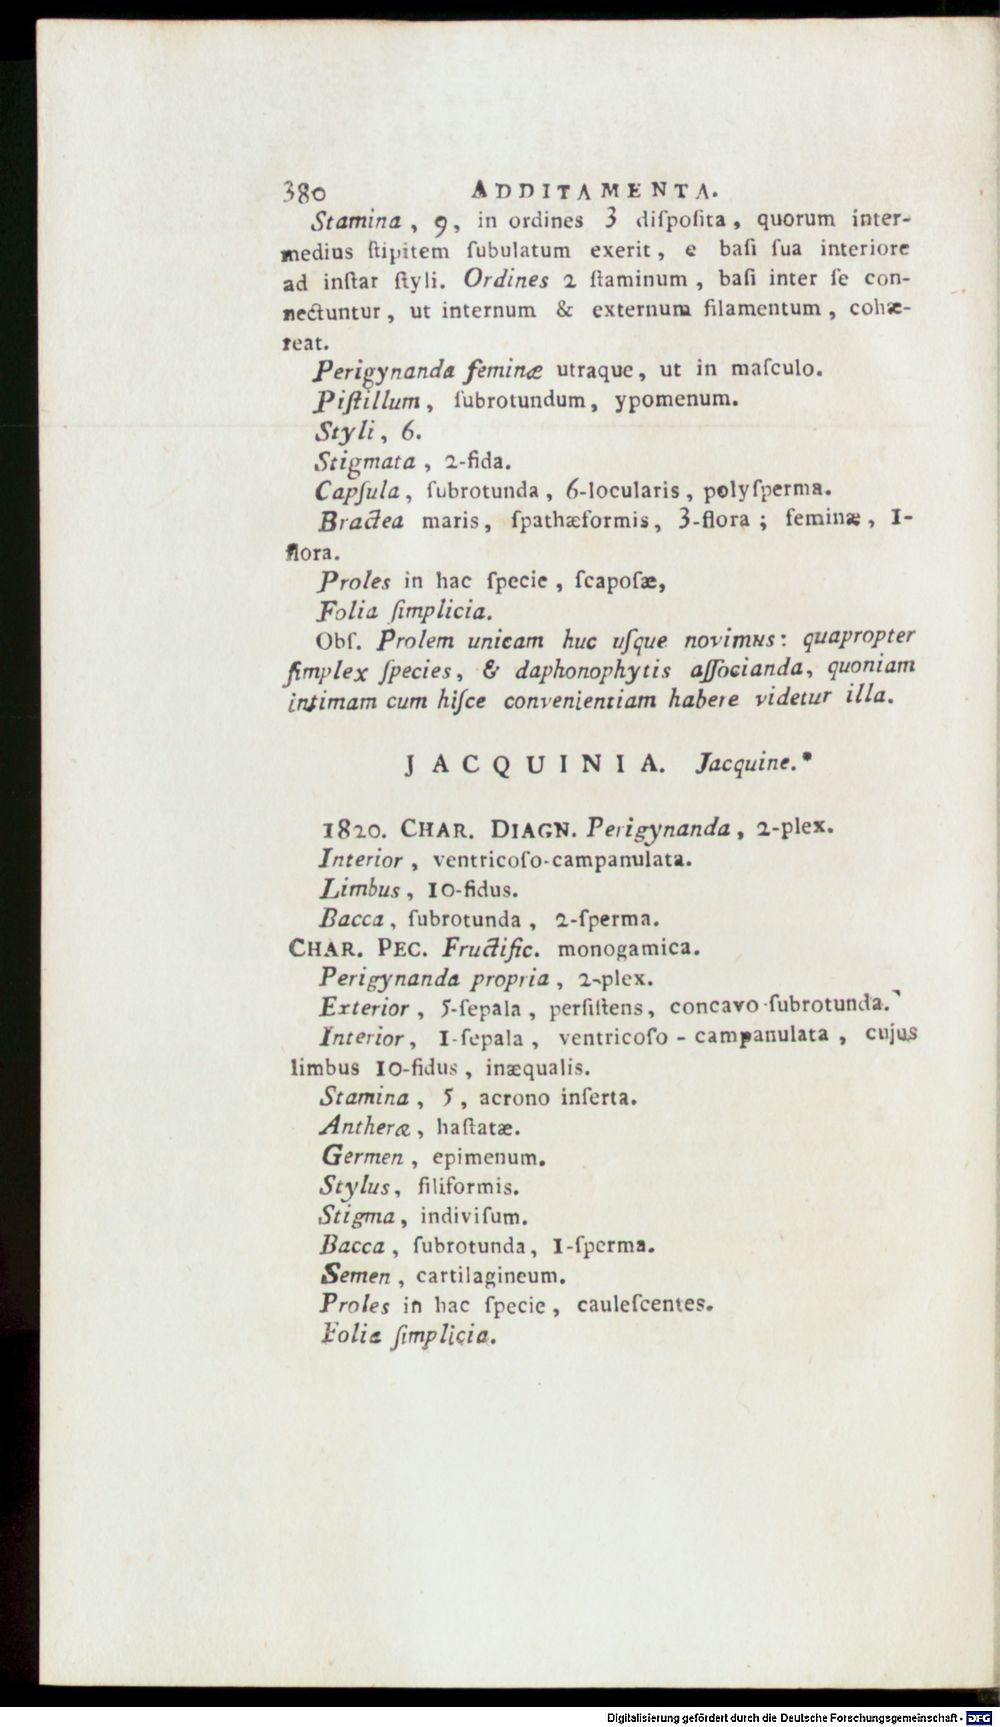 380 ADDITAMENTA.
Stamina, 9, in ordines 3 diſpoſita, quorum inter-
medius ſtipitem ſubulatum exerit, e baſi ſua interiore
ad inſtar ſtyli. Ordines 2 ſtaminum, baſi inter ſe con-
nectuntur, ut internum & externum filamentum, cohæ-
reat.
Perigynanda feminæ utraque, ut in maſculo.
Piſtillum, ſubrotundum, ypomenum.
Styli, 6.
Stigmata, 2-fida.
Capſula, ſubrotunda, 6-locularis, polyſperma.
Bractea maris, ſpathæformis, 3-flora; feminæ, 1-
flora.
Proles in hac ſpecie, ſcapoſæ,
Folia ſimplicia.
Obſ. Prolem unicam huc uſque novimus: quapropter
ſimplex ſpecies, & daphonophytis aſſocianda, quoniam
intimam cum hiſce convenientiam habere videtur illa.
JACQUINIA. Jacquine.*
1820. CHAR. DIAGN. Perigynanda, 2-plex.
Interior, ventricoſo-campanulata.
Limbus, 10-fidus.
Bacca, ſubrotunda, 2-ſperma.
CHAR. PEC. Fructific. monogamica.
Perigynanda propria, 2-plex.
Exterior, 5-ſepala, perſiſtens, concavo-ſubrotunda.
Interior, 1-ſepala, ventricoſo-campanulata, cujus
limbus 10-fidus, inæqualis.
Stamina, 5, acrono inſerta.
Antheræ, haſtatæ.
Germen, epimenum.
Stylus, filiformis.
Stigma, indiviſum.
Bacca, ſubrotunda, 1-ſperma.
Semen, cartilagineum.
Proles in hac ſpecie, cauleſcentes.
Folia ſimplicia.
Digitalisierung gefördert durch die Deutsche Forschungsgemeinschaft - DFG